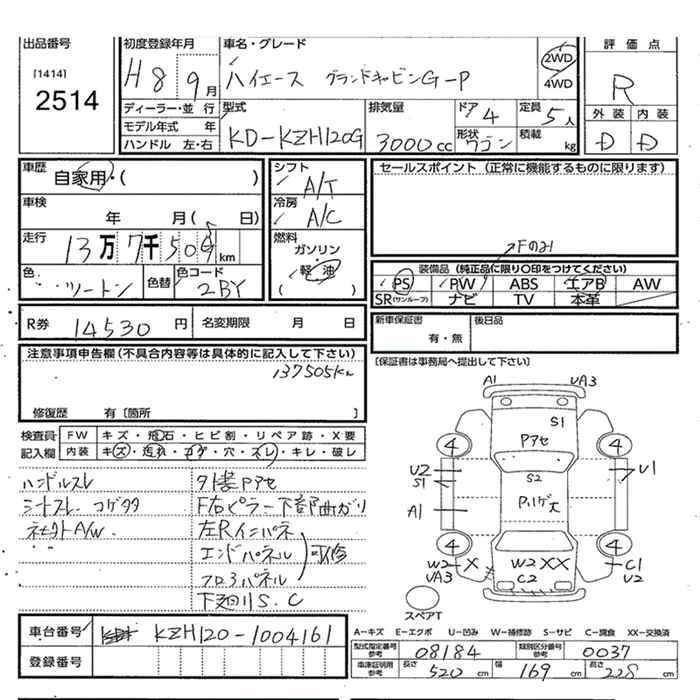 出品番号
[1414]
2514
初度登録年月
H8年9月
車名・グレード
ハイエース グランドキャビンG-P
2WD
4WD
評価点
R
外装 内装
D D
ディーラー・並行
モデル年式 年
ハンドル 左・右
型式
KD-KZH120G
排気量
3000cc
ドア
4
形状
ワゴン
定員
5人
積載
kg
車歴
自家用・( )
車検
年 月( 日)
走行
13万7千50 km
色
ツートン
色替
色コード
2BY
シフト
A/T
冷房
A/C
燃料
ガソリン・
(軽油)
セールスポイント (正常に機能するものに限ります)
Fのみ
装備品 (純正品に限り○印をつけてください)
PS PW ABS エアB AW
SR(サンルーフ) ナビ TV 本革
R券 14530円
名変期限 月 日
新車保証書
有・無
後日品
[保証書は事務局へ提出して下さい]
注意事項申告欄 (不具合内容等は具体的に記入して下さい)
137505km
修復歴 有 [箇所 ]
検査員
記入欄
FW キズ・飛石・ヒビ割・リペア跡・X要
内装 キズ・汚れ・コゲ・穴・スレ・キレ・破レ
ハンドルスレ
シートスレ コゲ
A/W
外装Pアセ
F右ピラー下部曲ガリ
左Rインパネ
エンドパネル
フロアパネル
可修
下廻りS.C
車台番号 KZH120-1004161
登録番号
A1 UA3
S1
Pアセ
4 4
U2
S1
U1
S2
A1
Pハゲ大
4 4
W2
UA3
X
W2 XX
C2
C1
U2
スペアT
A-キズ E-エクボ U-凹み W-補修跡 S-サビ C-腐食 XX-交換済
型式指定番号
参考
08184
類別区分番号
参考
0037
車庫証明用
参考
長さ 520cm
幅 169cm
高さ 228cm